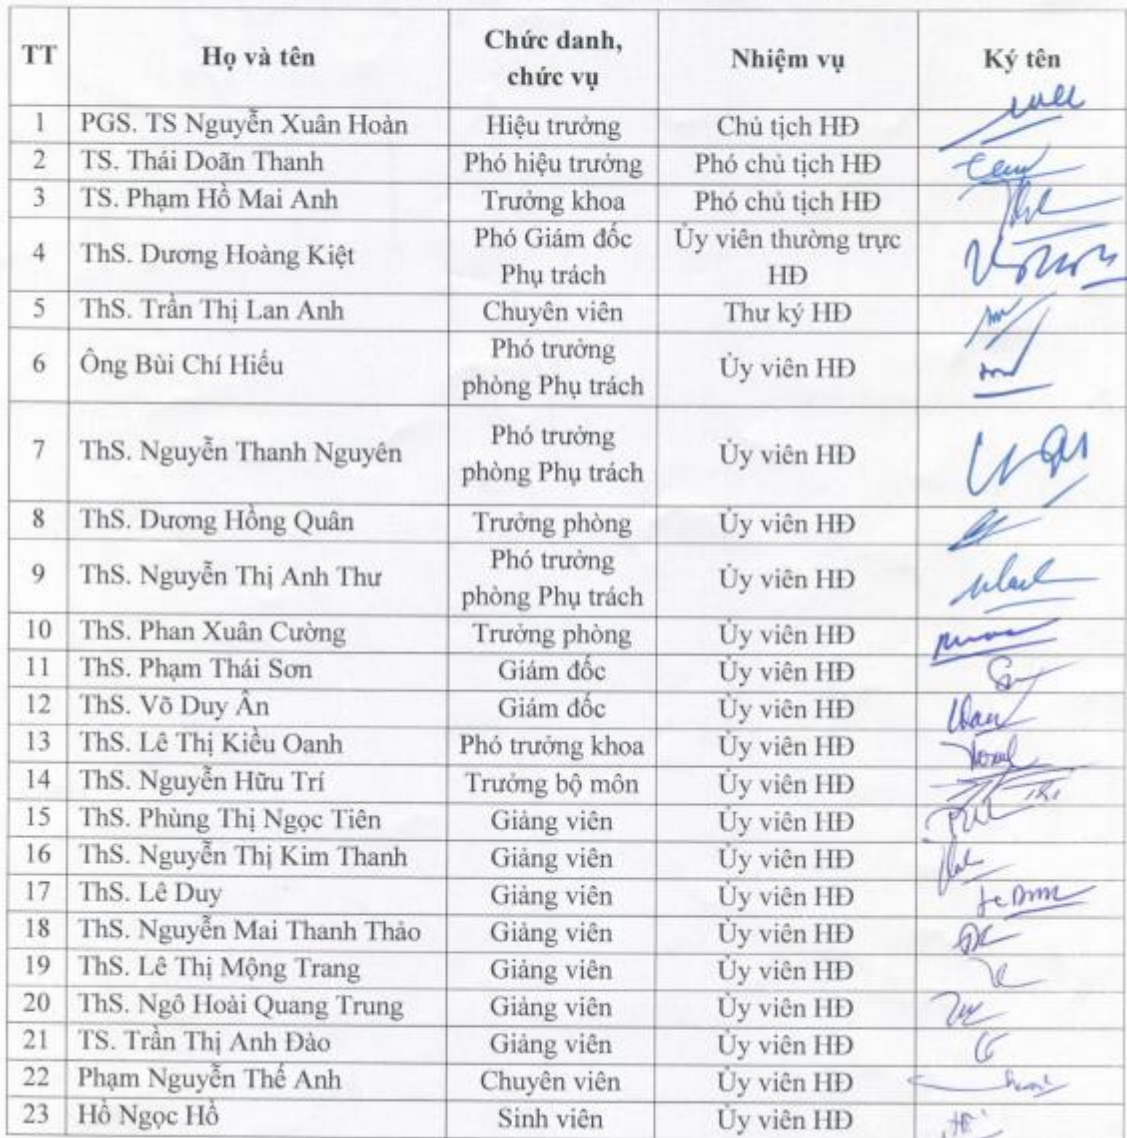 TT Họ và tên Chức danh, chức vụ Nhiệm vụ Ký tên
1 PGS. TS Nguyễn Xuân Hoàn Hiệu trưởng Chủ tịch HĐ
2 TS. Thái Doãn Thanh Phó hiệu trưởng Phó chủ tịch HĐ
3 TS. Phạm Hồ Mai Anh Trưởng khoa Phó chủ tịch HĐ
4 ThS. Dương Hoàng Kiệt Phó Giám đốc Phụ trách Ủy viên thường trực HĐ
5 ThS. Trần Thị Lan Anh Chuyên viên Thư ký HĐ
6 Ông Bùi Chí Hiếu Phó trưởng phòng Phụ trách Ủy viên HĐ
7 ThS. Nguyễn Thanh Nguyên Phó trưởng phòng Phụ trách Ủy viên HĐ
8 ThS. Dương Hồng Quân Trưởng phòng Ủy viên HĐ
9 ThS. Nguyễn Thị Anh Thư Phó trưởng phòng Phụ trách Ủy viên HĐ
10 ThS. Phan Xuân Cường Trưởng phòng Ủy viên HĐ
11 ThS. Phạm Thái Sơn Giám đốc Ủy viên HĐ
12 ThS. Võ Duy Ân Giám đốc Ủy viên HĐ
13 ThS. Lê Thị Kiều Oanh Phó trưởng khoa Ủy viên HĐ
14 ThS. Nguyễn Hữu Trí Trưởng bộ môn Ủy viên HĐ
15 ThS. Phùng Thị Ngọc Tiên Giảng viên Ủy viên HĐ
16 ThS. Nguyễn Thị Kim Thanh Giảng viên Ủy viên HĐ
17 ThS. Lê Duy Giảng viên Ủy viên HĐ
18 ThS. Nguyễn Mai Thanh Thảo Giảng viên Ủy viên HĐ
19 ThS. Lê Thị Mộng Trang Giảng viên Ủy viên HĐ
20 ThS. Ngô Hoài Quang Trung Giảng viên Ủy viên HĐ
21 TS. Trần Thị Anh Đào Giảng viên Ủy viên HĐ
22 Phạm Nguyễn Thế Anh Chuyên viên Ủy viên HĐ
23 Hồ Ngọc Hồ Sinh viên Ủy viên HĐ